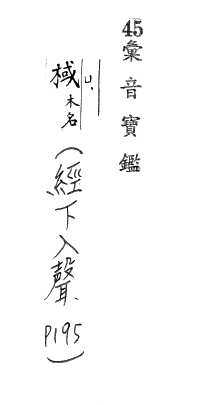 45彙音寶鑑
棫木名（經下入聲P195）